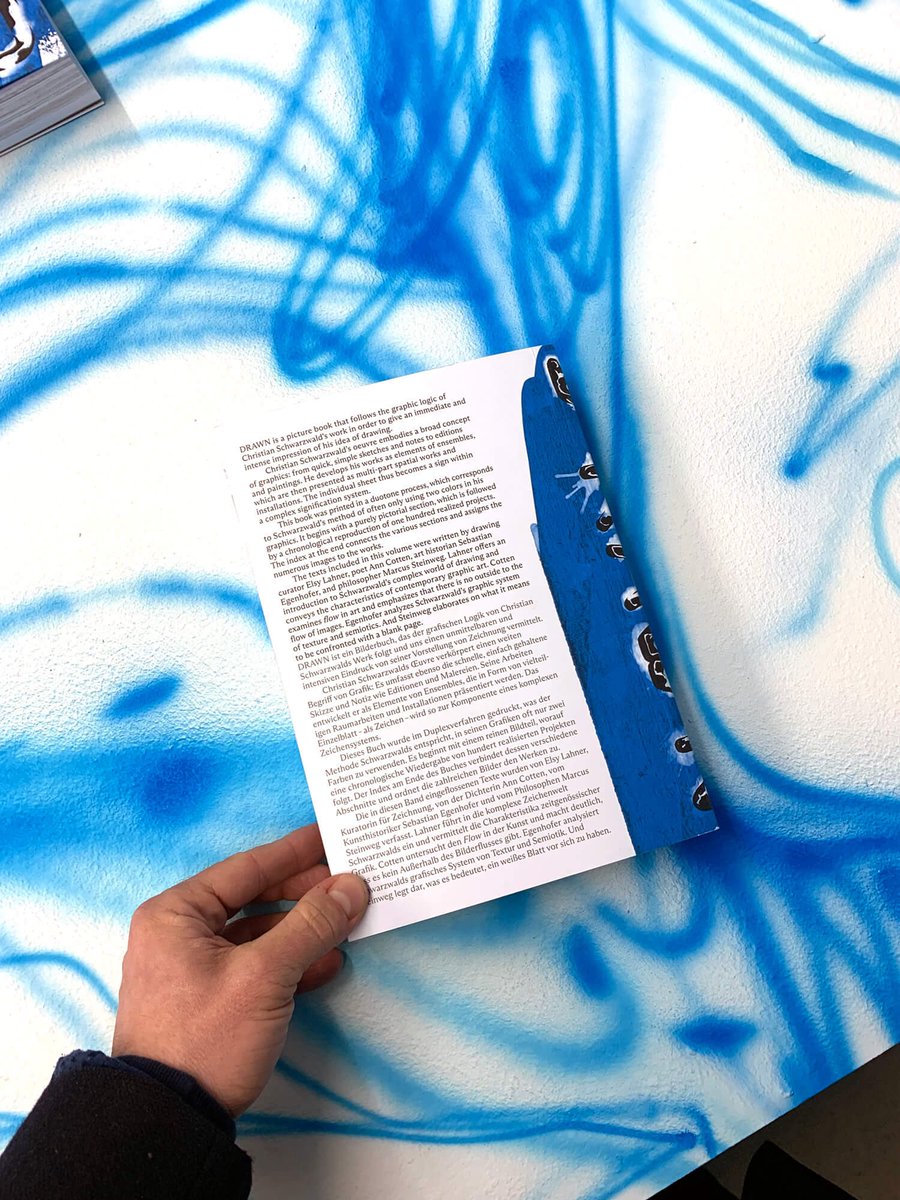 DRAWN is a picture book that follows the graphic logic of
Christian Schwarzwald's work in order to give an immediate and
intense impression of his idea of drawing.
Christian Schwarzwald's oeuvre embodies a broad concept
of graphics: from quick, simple sketches and notes to editions
and paintings. He develops his works as elements of ensembles,
which are then presented as multi-part spatial works and
installations. The individual sheet thus becomes a sign within
a complex signification system.
This book was printed in a duotone process, which corresponds
to Schwarzwald's method of often only using two colors in his
graphics. It begins with a purely pictorial section, which is followed
by a chronological reproduction of one hundred realized projects.
The index at the end connects the various sections and assigns the
numerous images to the works.
The texts included in this volume were written by drawing
curator Elsy Lahner, poet Ann Cotten, art historian Sebastian
Egenhofer, and philosopher Marcus Steinweg. Lahner offers an
introduction to Schwarzwald's complex world of drawing and
conveys the characteristics of contemporary graphic art. Cotten
examines flow in art and emphasizes that there is no outside to the
flow of images. Egenhofer analyzes Schwarzwald's graphic system
of texture and semiotics. And Steinweg elaborates on what it means
to be confronted with a blank page.
DRAWN ist ein Bilderbuch, das der grafischen Logik von Christian
Schwarzwalds Werk folgt und uns einen unmittelbaren und
intensiven Eindruck von seiner Vorstellung von Zeichnung vermittelt.
Christian Schwarzwalds Œuvre verkörpert einen weiten
Begriff von Grafik: Es umfasst ebenso die schnelle, einfach gehaltene
Skizze und Notiz wie Editionen und Malereien. Seine Arbeiten
entwickelt er als Elemente von Ensembles, die in Form von vielteil-
igen Raumarbeiten und Installationen präsentiert werden. Das
Einzelblatt - als Zeichen - wird so zur Komponente eines komplexen
Zeichensystems.
Dieses Buch wurde im Duplexverfahren gedruckt, was der
Methode Schwarzwalds entspricht, in seinen Grafiken oft nur zwei
Farben zu verwenden. Es beginnt mit einem reinen Bildteil, worauf
eine chronologische Wiedergabe von hundert realisierten Projekten
folgt. Der Index am Ende des Buches verbindet dessen verschiedene
Abschnitte und ordnet die zahlreichen Bilder den Werken zu.
Die in diesen Band eingeflossenen Texte wurden von Elsy Lahner,
Kuratorin für Zeichnung, von der Dichterin Ann Cotten, vom
Kunsthistoriker Sebastian Egenhofer und vom Philosophen Marcus
Steinweg verfasst. Lahner führt in die komplexe Zeichenwelt
Schwarzwalds ein und vermittelt die Charakteristika zeitgenössischer
Grafik. Cotten untersucht den Flow in der Kunst und macht deutlich,
es kein Außerhalb des Bilderflusses gibt. Egenhofer analysiert
warzwalds grafisches System von Textur und Semiotik. Und
einweg legt dar, was es bedeutet, ein weißes Blatt vor sich zu haben.